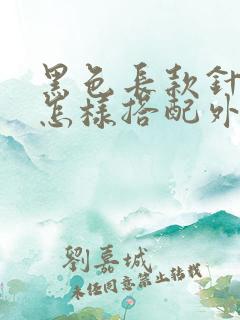 黑色長款針
怎樣搭配外
劉嘉城
未经同意禁止转载